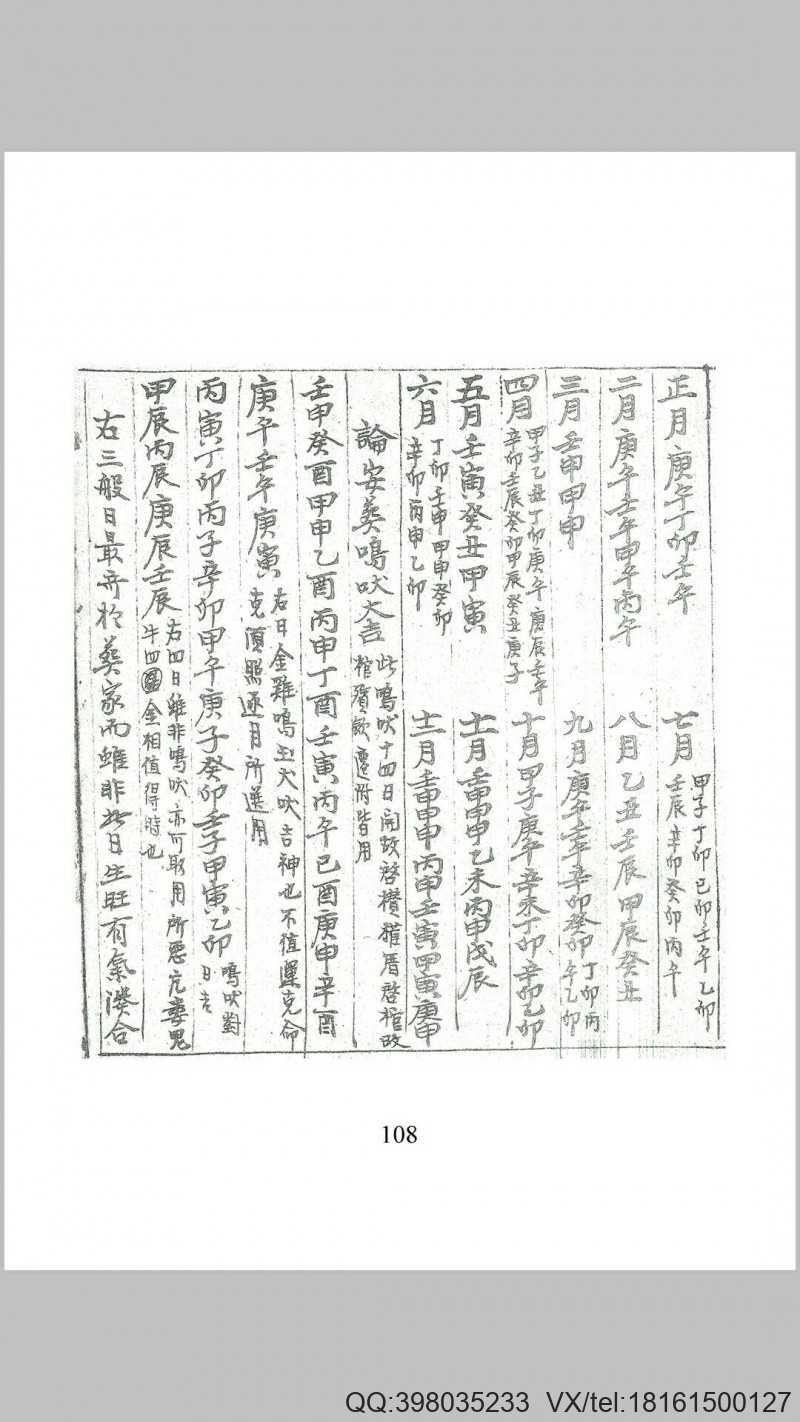 正月 庚午丁卯壬午
七月 甲子丁卯己卯壬午乙卯
壬辰辛卯癸卯丙午
二月 庚午壬午甲午丙午
八月 乙丑壬辰甲辰癸丑
三月 壬申甲申
九月 庚午壬午辛卯癸卯丁卯丙
午乙卯
四月 甲子乙丑丁卯庚午庚辰壬午
辛卯壬辰癸卯甲辰癸丑庚子
十月 甲子庚午辛未丁卯辛卯乙卯
五月 壬寅癸丑甲寅
十一月 壬申甲申乙未丙申戊辰
六月 丁卯壬申甲申癸卯
辛卯丙申乙卯
十二月 壬申甲申丙申壬寅甲寅庚申
論安葬鳴吠大吉 此鳴吠十四日開改啓攢權厝啓棺改
棺殯歛遷附皆用
壬申癸酉甲申乙酉丙申丁酉壬寅丙午己酉庚申辛酉
庚午壬午庚寅 右日金雞鳴玉犬吠吉神也不值運克命
克須照逐月所選用
丙寅丁卯丙子辛卯甲午庚子癸卯壬子甲寅乙卯 鳴吠對
日吉
甲辰丙辰庚辰壬辰 右四日雖非鳴吠亦可取用所惡亢婁鬼
牛四金相值得時也
右三般日最奇於葬家而雖非此日生旺有氣湊合
108
QQ:398035233 VX/tel:18161500127